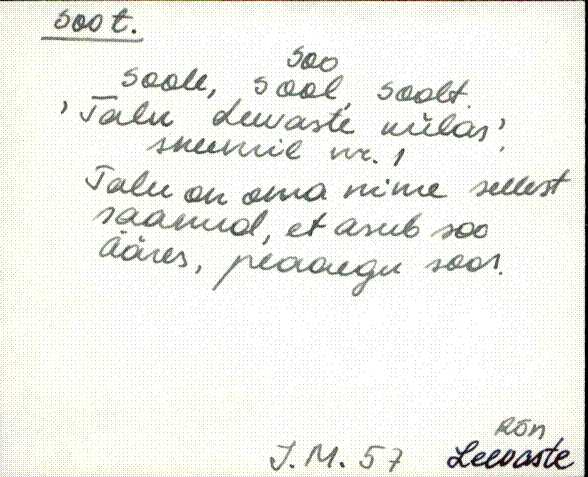 soo t.
soo
soole, sool, soolt.
'Talu Leevaste külas',
skeemil nr. 1
Talu on oma nime sellest
saanud, et asub soo
ääres, peaaegu soos.
Rõn
J.M. 57 Leevaste